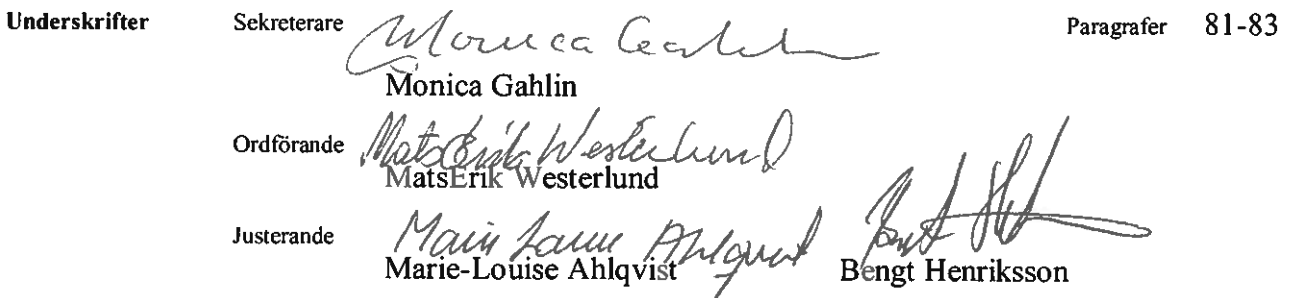 Underskrifter Sekreterare Monica Gahlin Paragrafer 81-83
Monica Gahlin
Ordförande MatsErik Westerlund
MatsErik Westerlund
Justerande Marie Louise Ahlqvist Bengt H
Marie-Louise Ahlqvist Bengt Henriksson